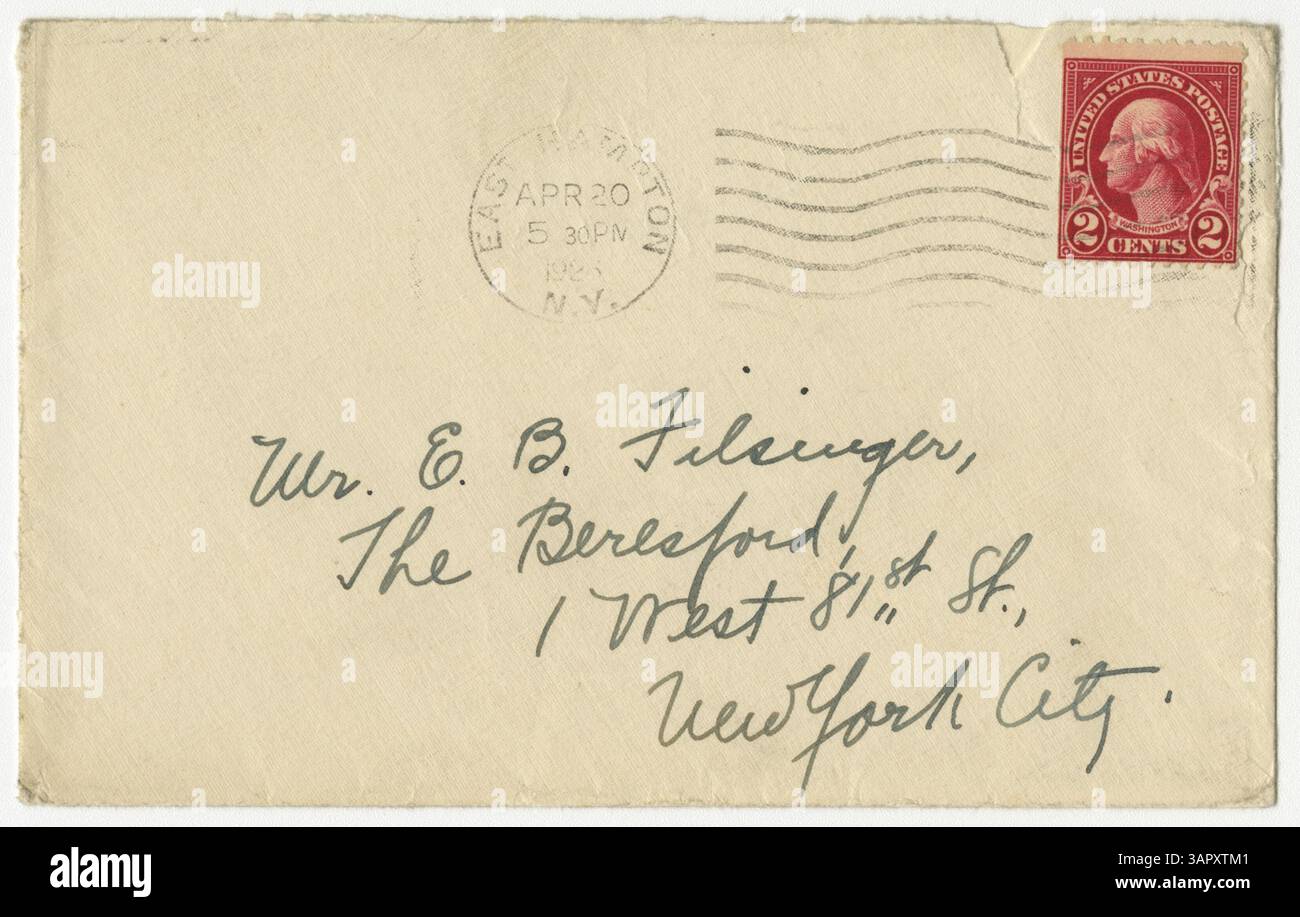 EAST HAMPTON
APR 20
5 30 PM
N.Y.
UNITED STATES POSTAGE
WASHINGTON
2 CENTS 2
Mr. E. B. Filsinger,
The Beresford,
1 West 81st St.,
New York City.
alamy
alamy
Image ID: 3APXTM1
www.alamy.com